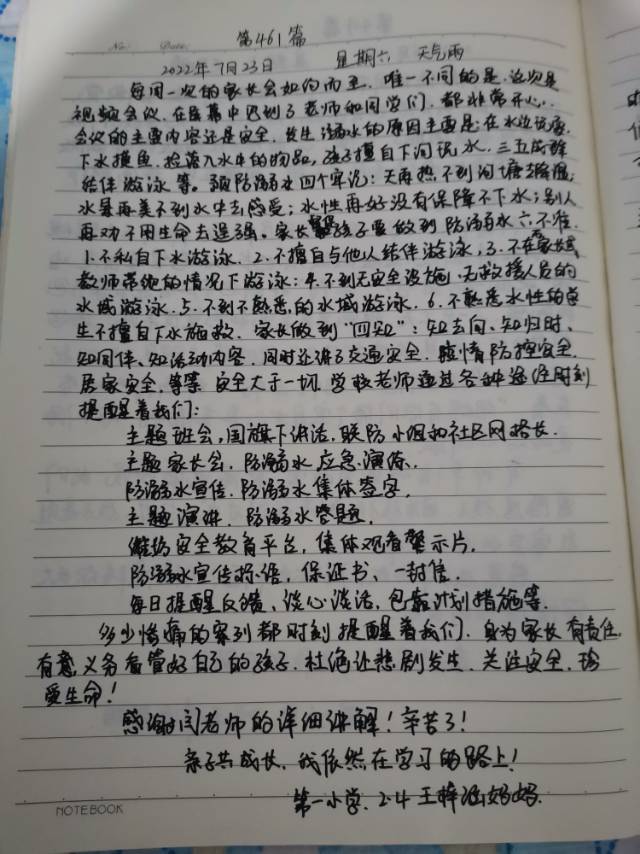 第461篇
No. Date.
2022年7月23日 星期六 天气雨
每周一次的家长会如约而至，唯一不同的是，这次是
视频会议，在屏幕中见到了老师和同学们，都非常开心，
会议的主要内容还是安全，发生溺水的原因主要是：在水边玩耍，
下水摸鱼，捡落入水中的物品，孩子擅自下河玩水，三五成群
结伴游泳等。预防溺水四个牢记：天再热不到河塘去降温；
水景再美不到水中去感受；水性再好没有保障不下水；别人
再劝不用生命去逞强。家长孩子要做到防溺水六不准
1.不私自下水游泳，2.不擅自与他人结伴游泳，3.不在家长或
教师带领的情况下游泳；4.不到无安全设施，无救援人员的
水域游泳，5.不到不熟悉的水域游泳，6.不熟悉水性的学
生不擅自下水施救，家长做到“四知”：知去向、知归时、
知同伴、知活动内容，同时还讲了交通安全，疫情防控安全，
居家安全，等等，安全大于一切，学校老师通过各种途径时刻
提醒着我们：
主题班会，国旗下讲话，联防小组和社区网格长，
主题家长会，防溺水应急演练，
防溺水宣传，防溺水集体签字，
主题演讲，防溺水答题，
潍坊安全教育平台，集体观看警示片，
防溺水宣传标语，保证书、一封信，
每日提醒反馈、谈心谈话，包靠计划措施等，
多少惨痛的案列都时刻提醒着我们，身为家长有责任，
有意义务看管好自己的孩子，杜绝让悲剧发生，关注安全，珍
爱生命！
感谢闫老师的详细讲解！辛苦了！
亲子共成长，我依然在学习的路上！
第一小学，2.4王梓涵妈妈
NOTEBOOK